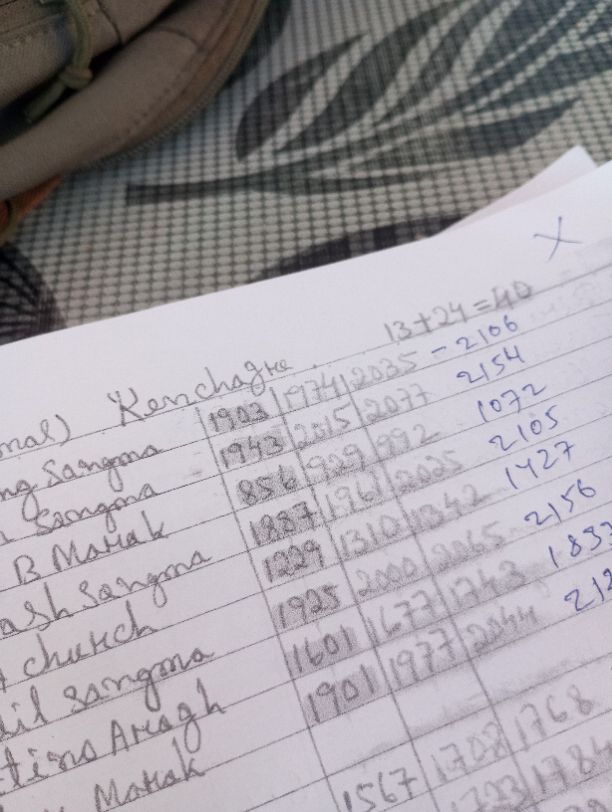 X
13+24=40
nal) Kenchagre
ng Sangma 1903 1974 2035 - 2106
Sangma 1943 2015 2077 2154
B Marak 856 929 992 1072
ash Sangma 1887 1961 2025 2105
church 1229 1310 1342 1427
il Sangma 1925 2000 2065 2156
tino Areagh 1601 1677 1743 183
Marak 1901 1977 2044 212
1567 1708 1768
1784